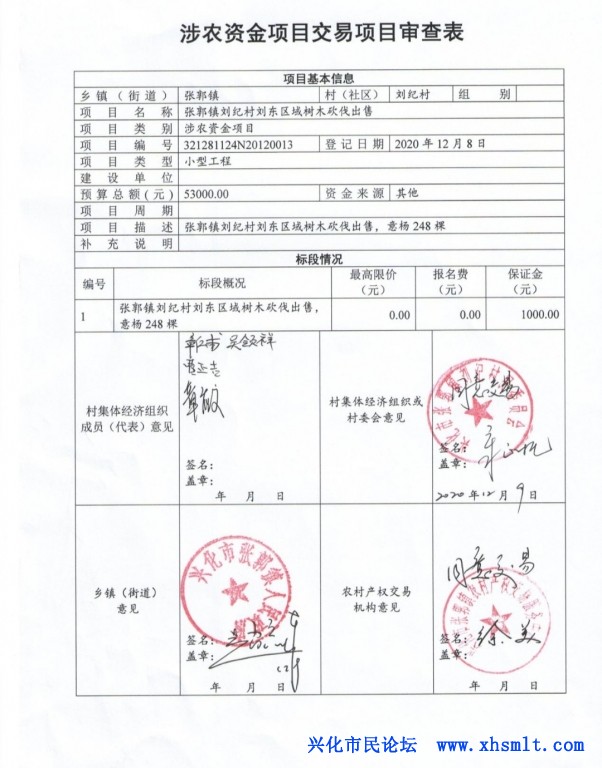 涉农资金项目交易项目审查表
项目基本信息
乡镇（街道） 张郭镇 村（社区） 刘纪村 组别
项目名称 张郭镇刘纪村刘东区域树木砍伐出售
项目类别 涉农资金项目
项目编号 321281124N20120013 登记日期 2020年12月8日
项目类型 小型工程
建设单位
预算总额(元) 53000.00 资金来源 其他
项目周期
项目描述 张郭镇刘纪村刘东区域树木砍伐出售，意杨248棵
补充说明
标段情况
编号 标段概况 最高限价（元） 报名费（元） 保证金（元）
1 张郭镇刘纪村刘东区域树木砍伐出售，意杨248棵 0.00 0.00 1000.00
村集体经济组织成员（代表）意见
签名：
盖章：
年 月 日
村集体经济组织或村委会意见
同意交易
签名：
盖章：
2020年12月9日
乡镇（街道）意见
兴化市张郭镇人民政府
签名：
盖章：
年 月 日
农村产权交易机构意见
同意交易
签名：
盖章：
年 月 日
兴化市民论坛 www.xhsmlt.com